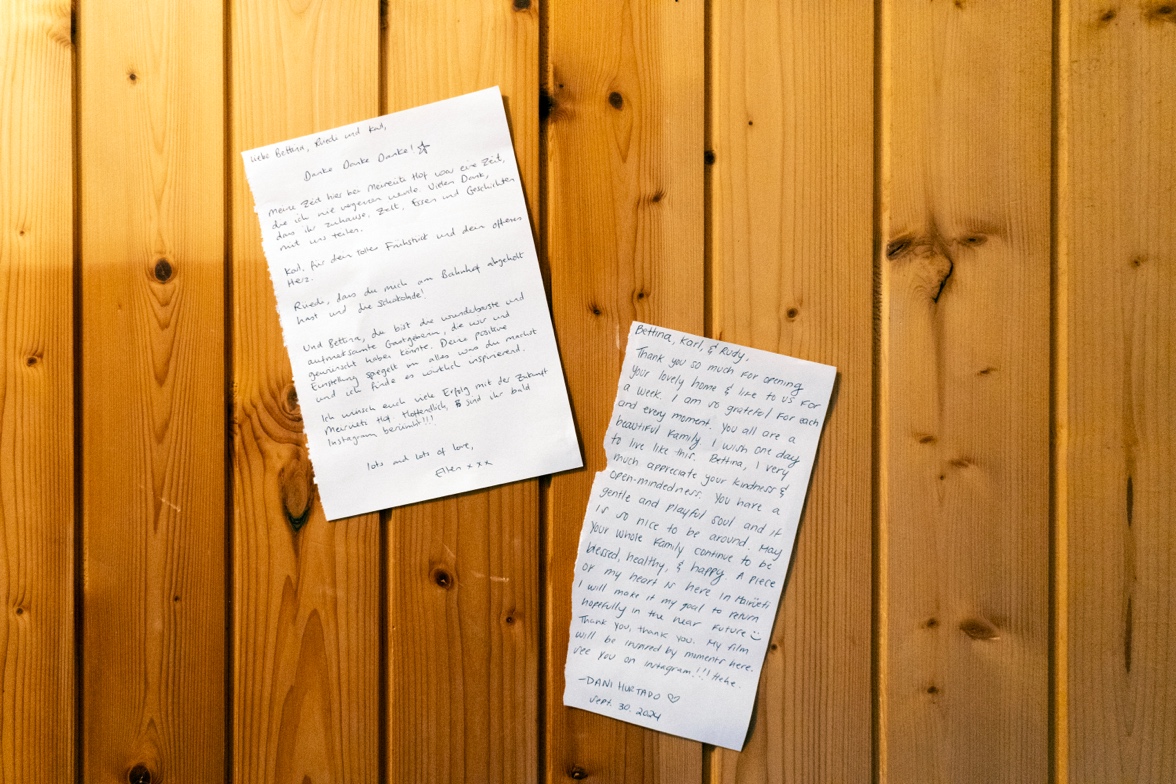 Liebe Bettina, Ruedi und Karl,
Danke Danke Danke!
Meine Zeit hier bei Meiriweits Hof war eine Zeit,
die ich nie vergessen werde. Vielen Dank,
dass ihr zuhause, Zeit, Essen und Geschichten
mit uns teilen.
Karl, für dem toller Frühstück und dem offenen
Herz.
Ruedi, dass du mich am Bahnhof abgeholt
hast und die Schokolade!
Und Bettina, du bist die wunderbarste und
aufmerksamste Gastgeberin, die wir uns
gewünscht habe könnte. Deine positive
Einstellung spiegelt in alles was du machst
und ich finde es wirklich inspirierend.
Ich wünsch euch viele Erfolg mit der Zukunft
Hof Hoffentlich, sind ihr bald
Instagram berühmt!!!
lots and lots of love,
Ellen x x x
Bettina, Karl, & Rudy,
Thank you so much for opening
your lovely home & life to us for
a week. I am so grateful for each
and every moment. You all are a
beautiful family I wish one day
to live like this. Bettina, I very
much appreciate your kindness &
open-mindedness. You have a
gentle and playful soul and it
is so nice to be around. May
your whole family continue to be
blessed, healthy, & happy. A piece
of my heart is here in
I will make it my goal to return
hopefully in the near future
Thank you, thank you. My film
will be inspired by moments here.
See you on instagram!!! Hehe.
-DANI HURTADO
Sept. 30. 2024